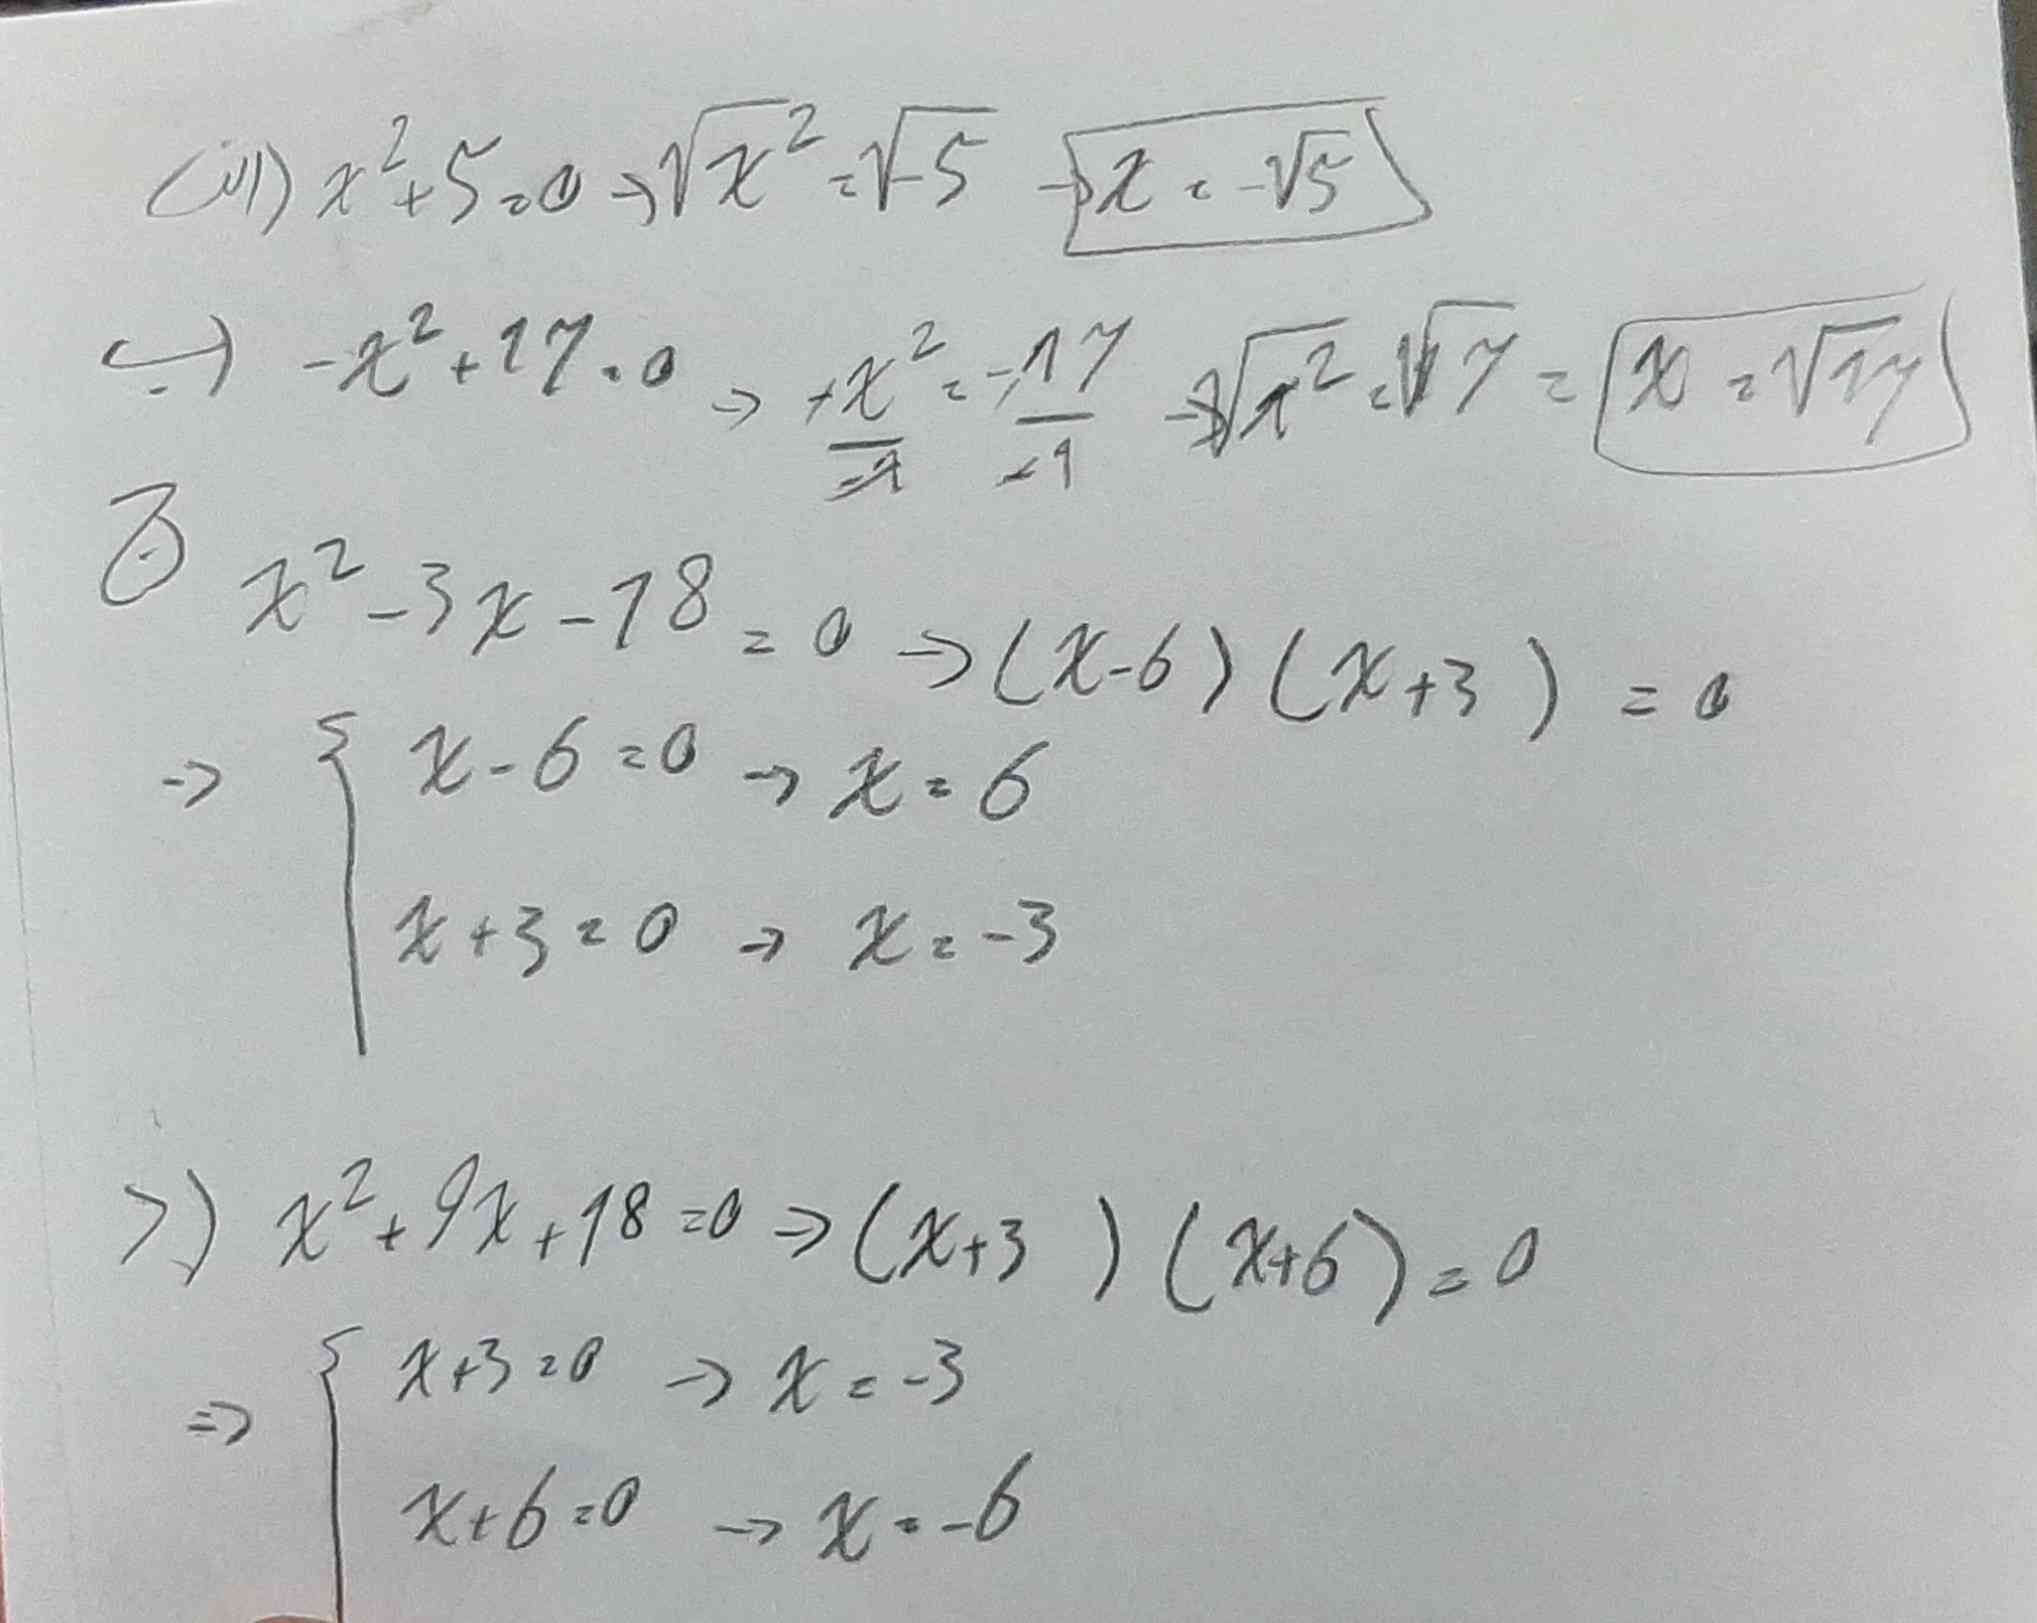 الف) x²+5=0 → √x² = √-5 → x = -√5
ب) -x²+17=0 → -x²/-1 = -17/-1 → √x² = √17 = x = √17
ج x²-3x-18=0 → (x-6)(x+3)=0
→ { x-6=0 → x=6
x+3=0 → x=-3
د) x²+9x+18=0 → (x+3)(x+6)=0
⇒ { x+3=0 → x=-3
x+6=0 → x=-6